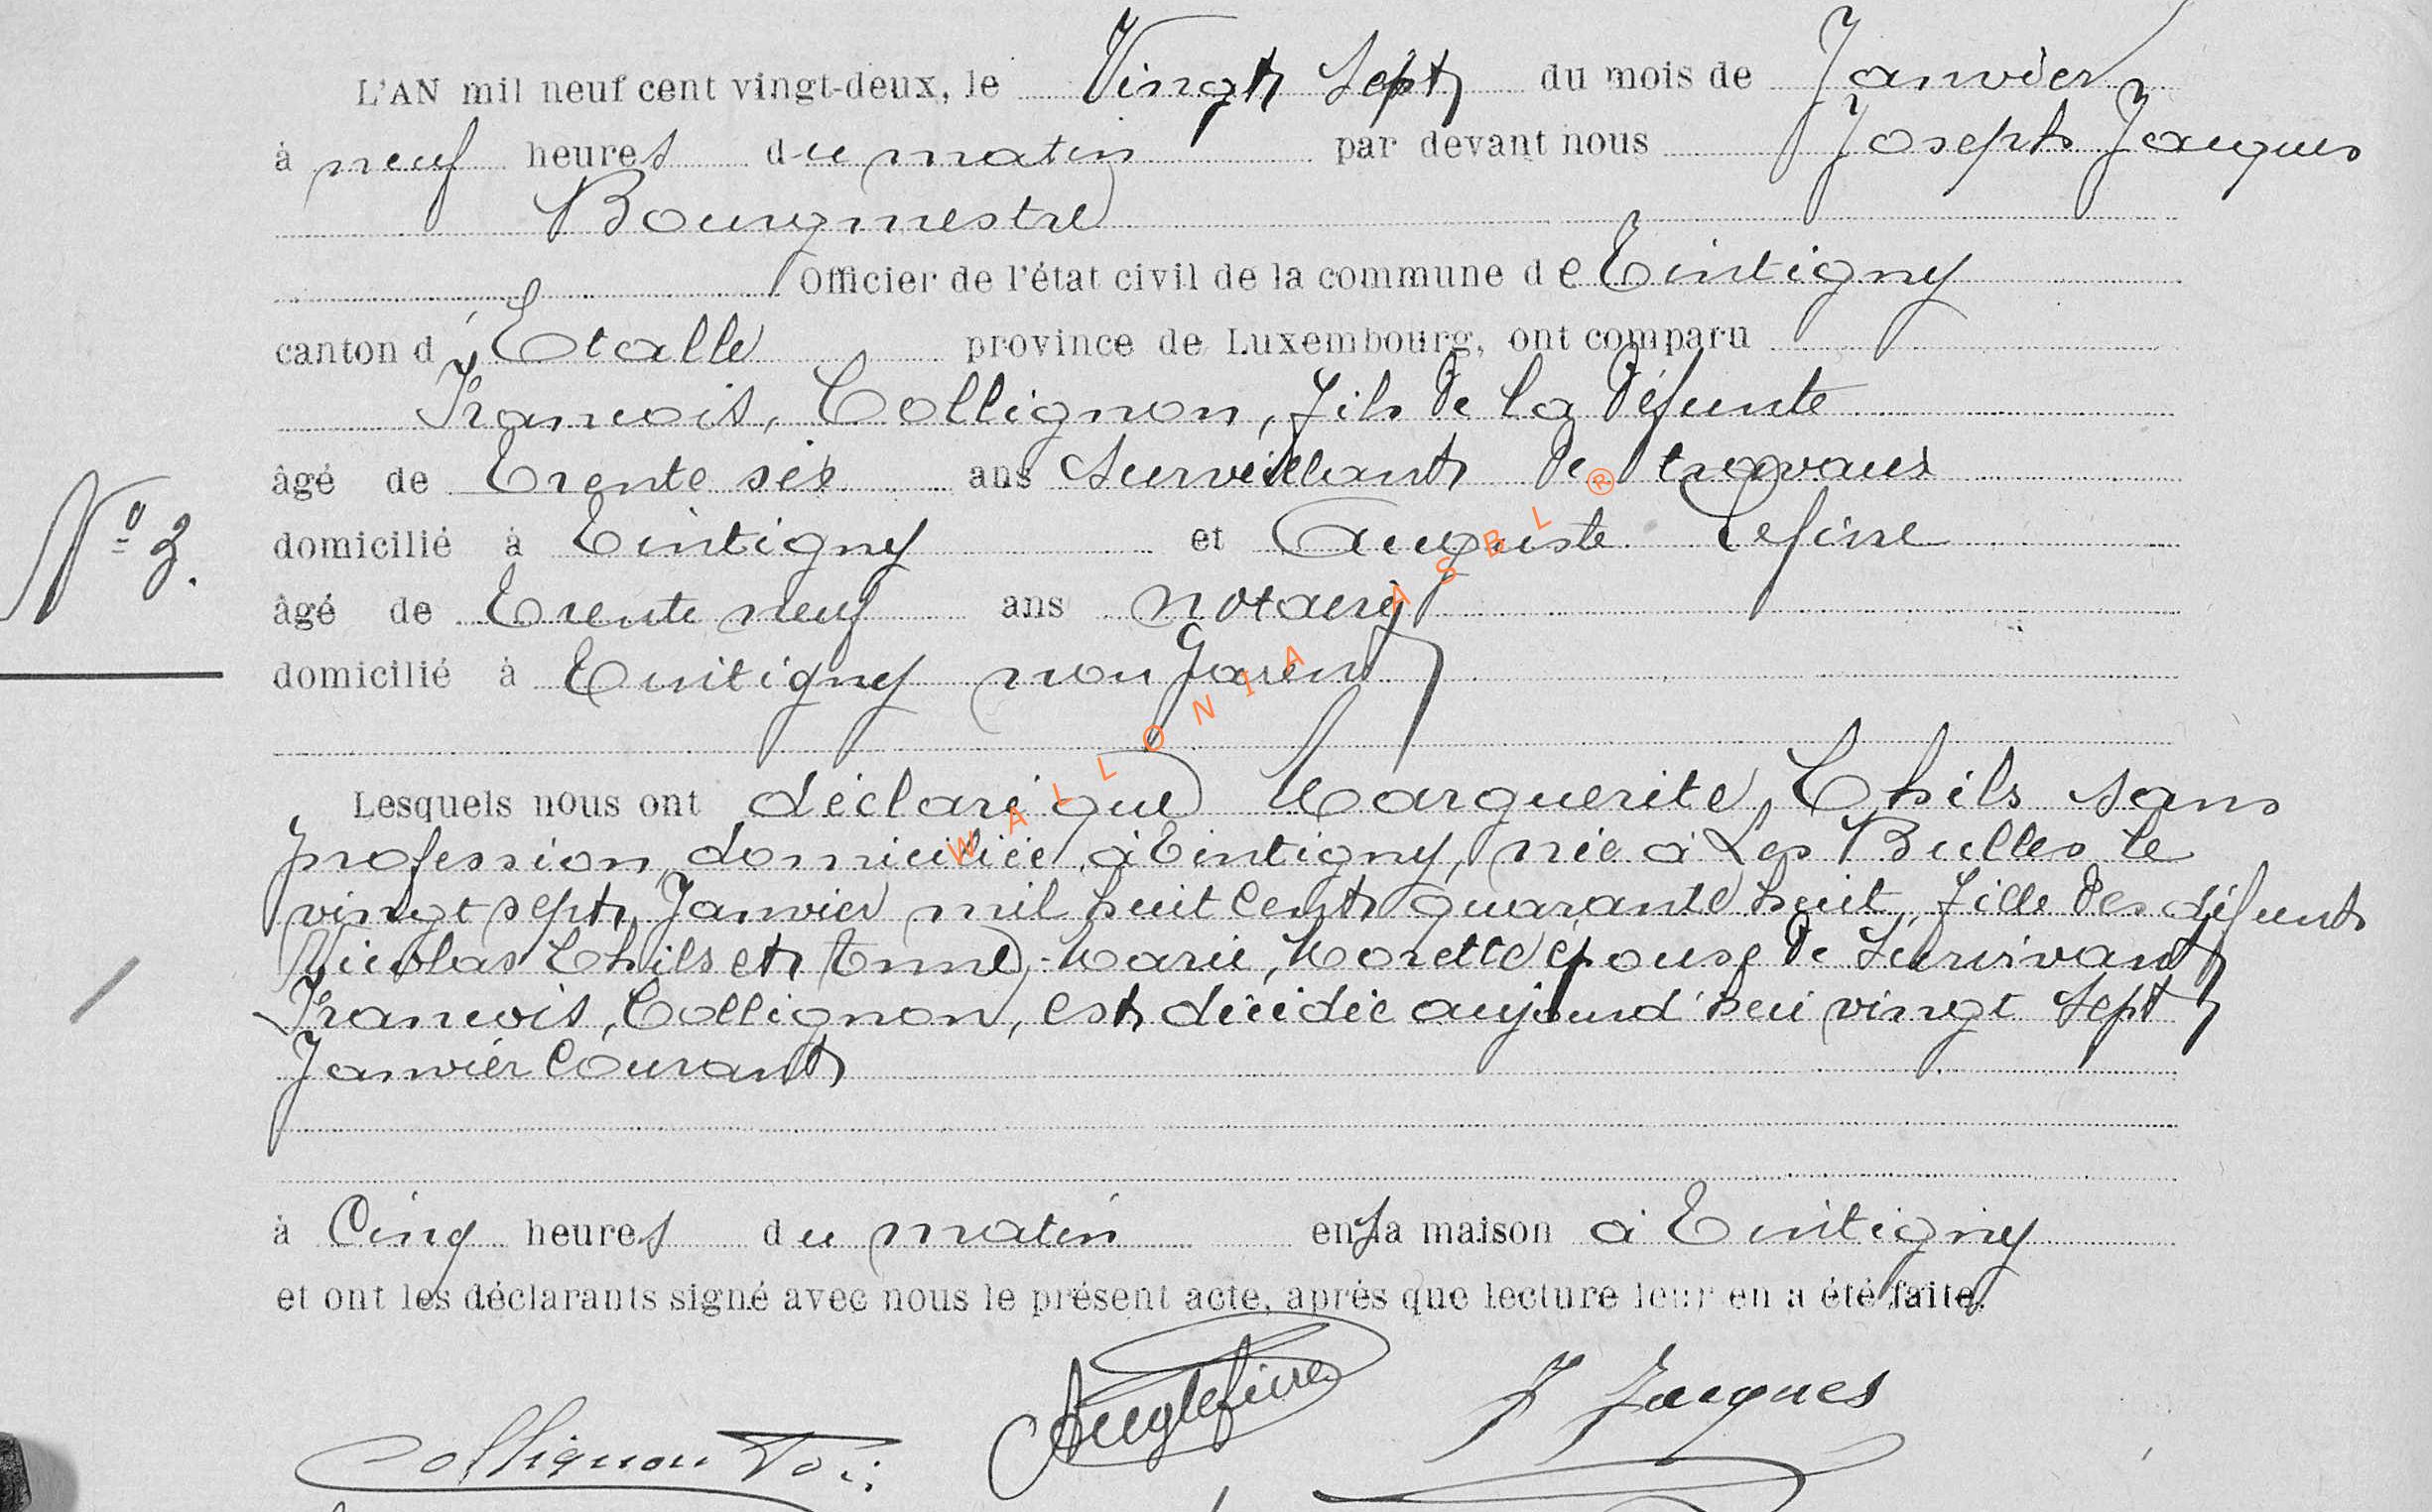 L'AN mil neuf cent vingt-deux, le Vingt Sept du mois de Janvier
à neuf heures du matin par devant nous Joseph Jacques
Bourgmestre
Officier de l'état civil de la commune de Tintigny
canton d'Etalle province de Luxembourg, ont comparu
Francois, Collignon, fils de la défunte
âgé de Trente six ans Surveillant de travaux
domicilié à Tintigny et Auguste Lefèvre
N° 3.
âgé de Trente neuf ans notaire
domicilié à Tintigny non parent
Lesquels nous ont déclaré que Marguerite, Thils sans
profession, domiciliée à Tintigny, née à Les Bulles le
vingt sept Janvier mil huit cent quarante huit, fille des défunts
Nicolas Thils et Anne-Marie, Morette épouse de Survivant
Francois, Collignon, est décédée aujourd'hui vingt sept
Janvier courant
à Cinq heures du matin en sa maison à Tintigny
et ont les déclarants signé avec nous le présent acte, après que lecture leur en a été faite.
Collignon Foi: Aug Lefèvre J Jacques
WALLONIA ASBL ®